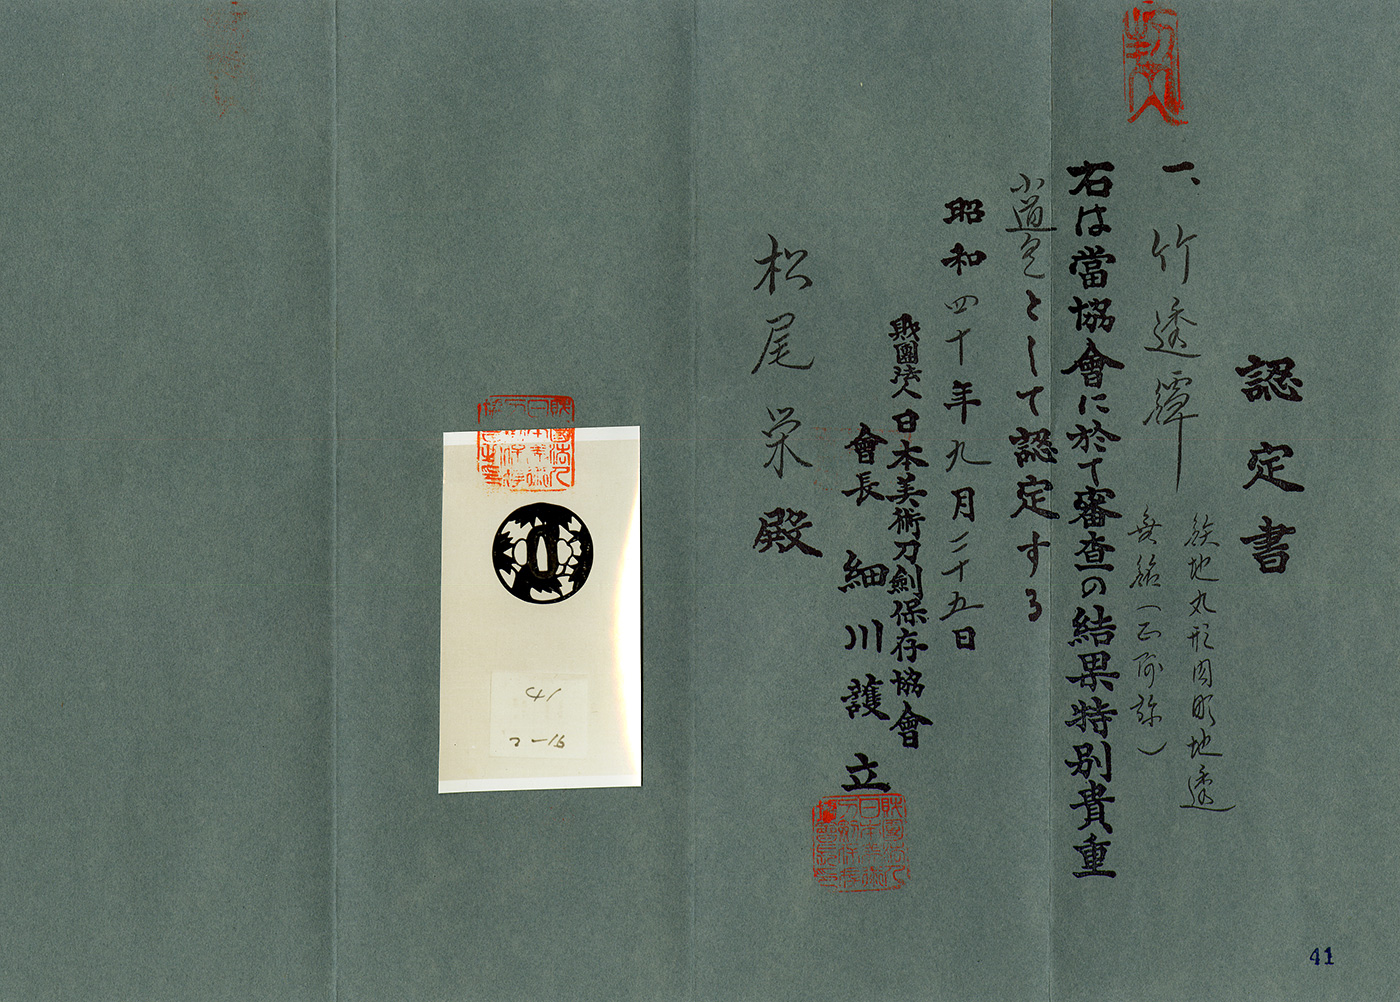 認定書
一、竹透鐔
鉄地丸形肉彫地透
無銘(正阿弥)
右は當協會に於て審査の結果特別貴重
小道具として認定する
昭和四十年九月二十五日
財團法人日本美術刀劍保存協會
會長 細川護立
松尾栄殿
41